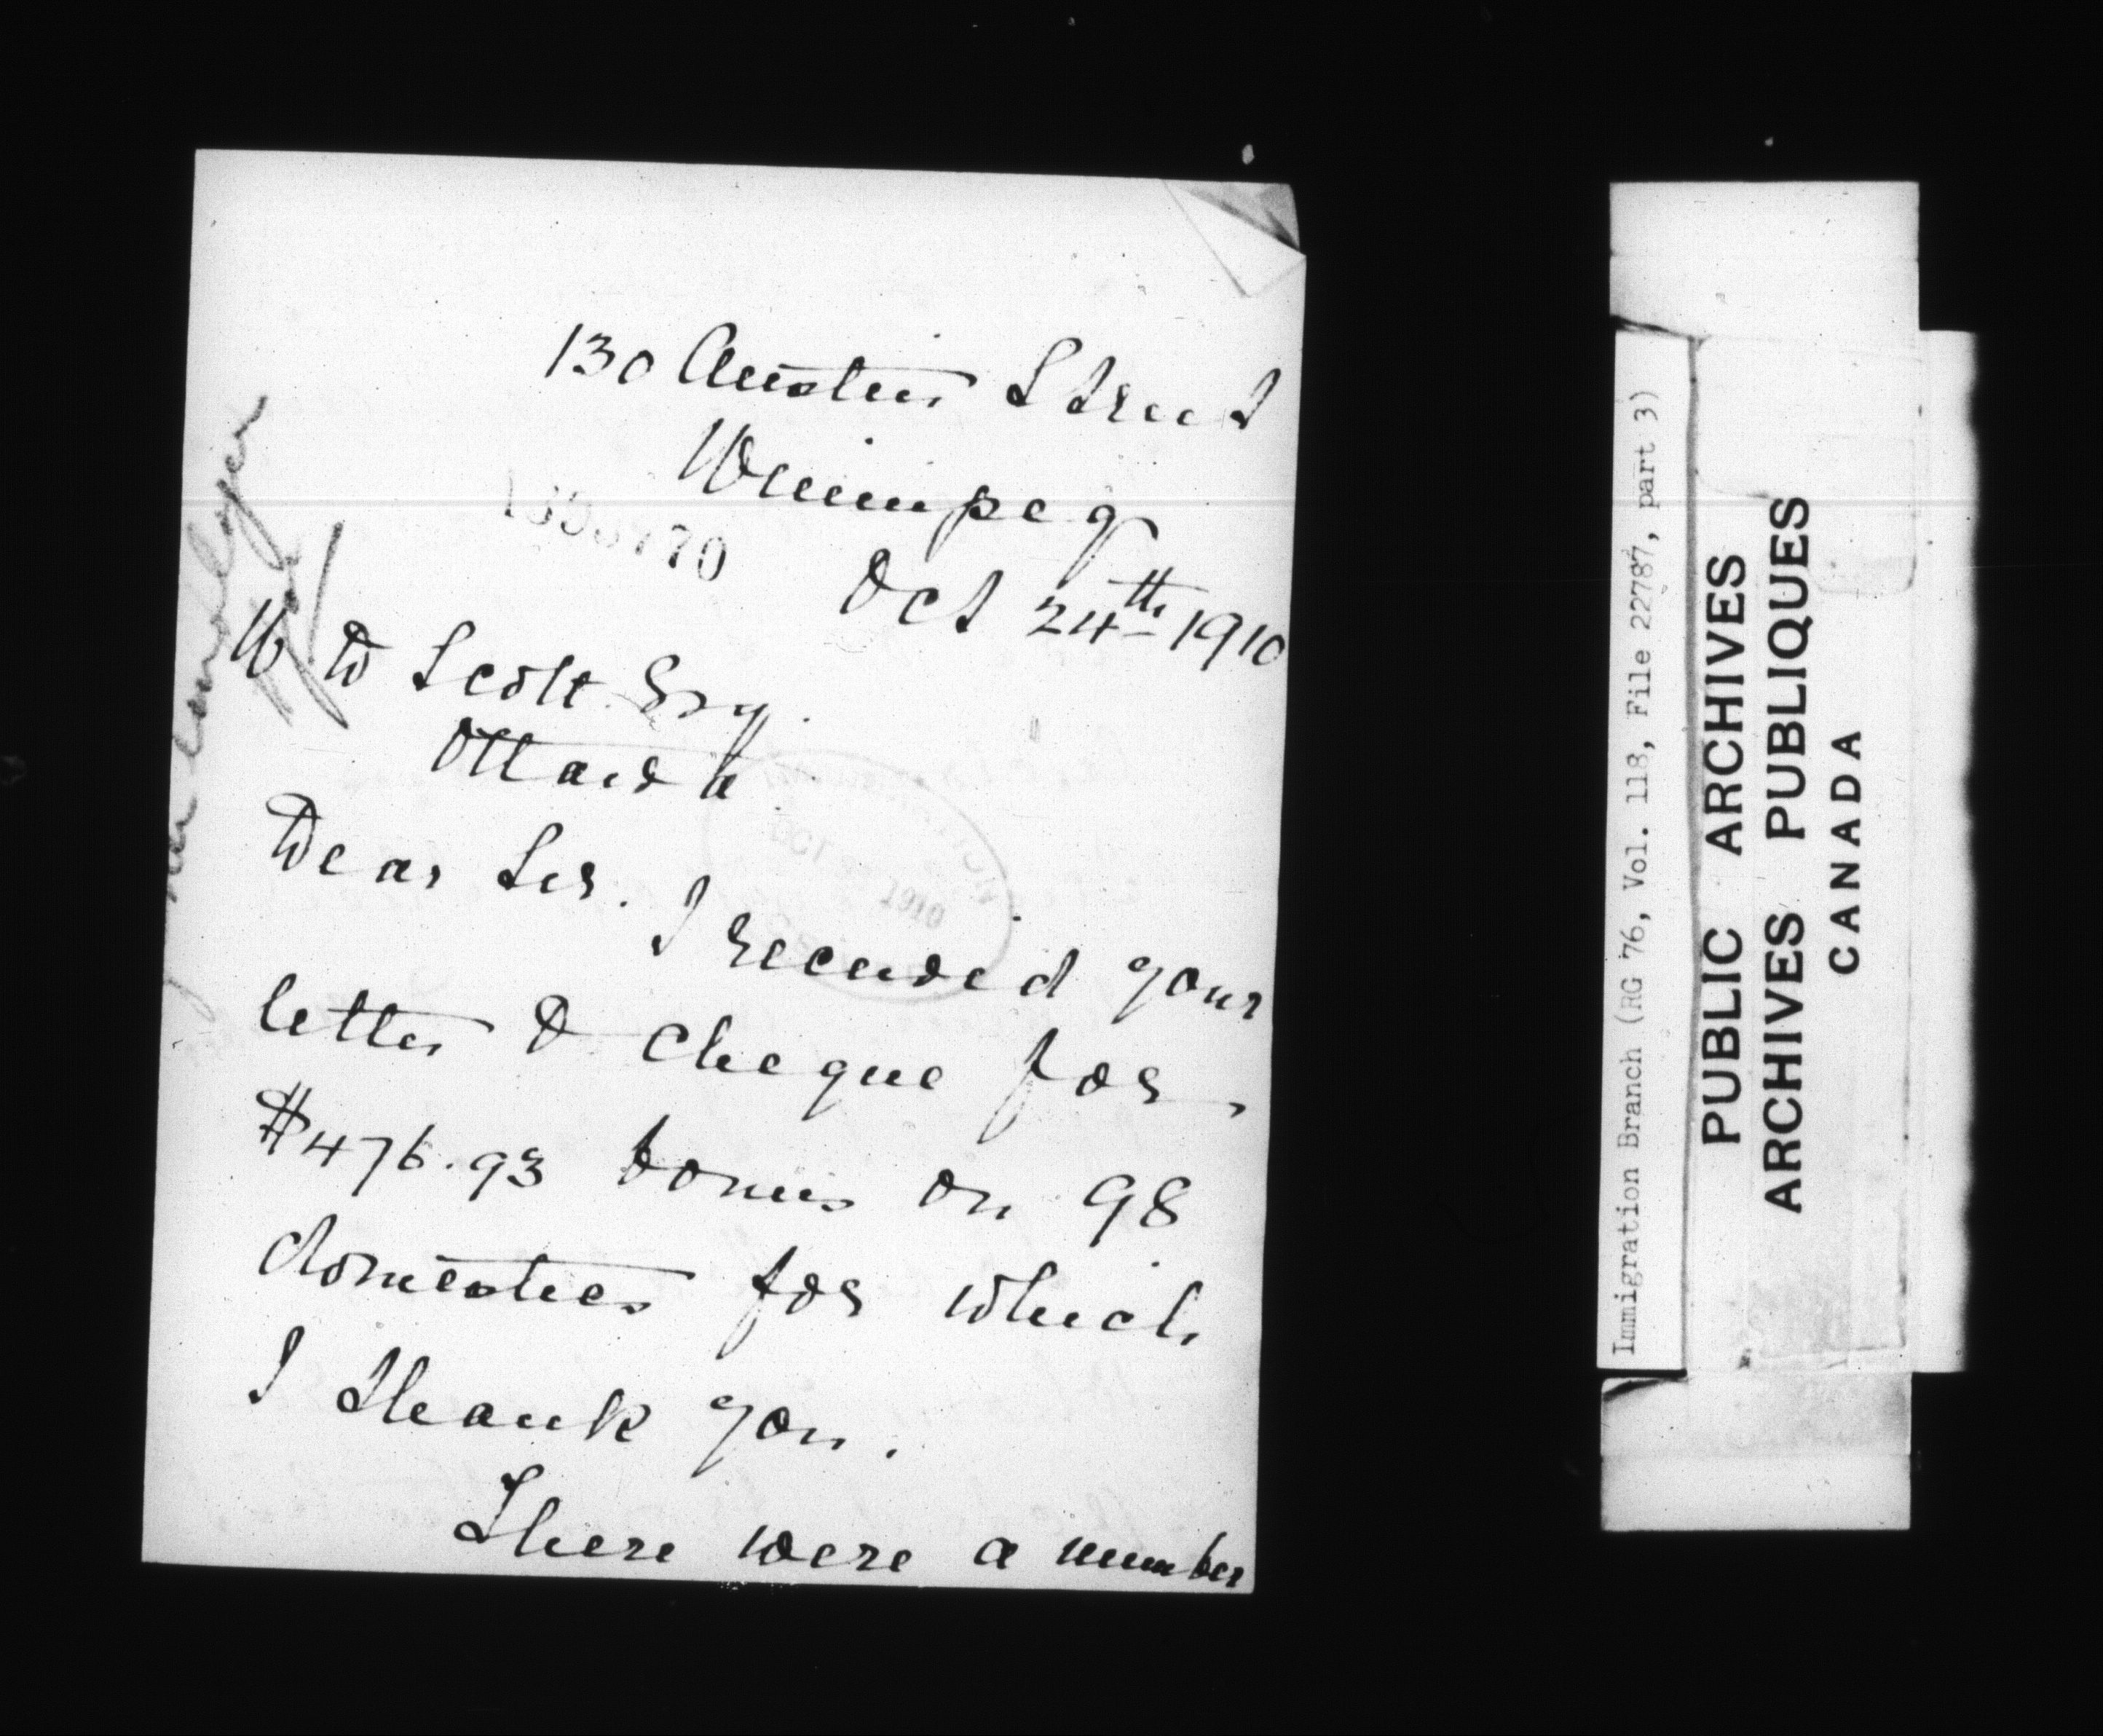 130 Austin Street
Winnipeg
Oct 24th 1910
W D Scott Esq.
Ottawa.
Dear Sir.
I received your
letter & cheque for
$476.93 bonus on 98
domestics for which
I thank you.
There were a number
OCT
1910
Immigration Branch (RG 76, Vol. 118, File 22787, part 3)
PUBLIC ARCHIVES
ARCHIVES PUBLIQUES
CANADA